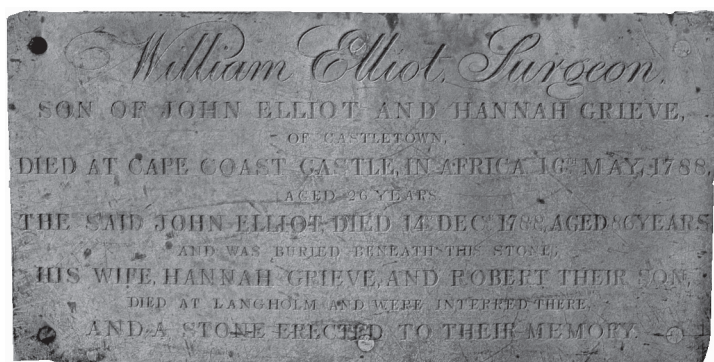 William Elliot, Surgeon,
SON OF JOHN ELLIOT AND HANNAH GRIEVE,
OF CASTLETOWN,
DIED AT CAPE COAST CASTLE, IN AFRICA 16TH MAY, 1788,
AGED 26 YEARS
THE SAID JOHN ELLIOT DIED 14 DECR 1788, AGED 86 YEARS
AND WAS BURIED BENEATH THIS STONE;
HIS WIFE, HANNAH GRIEVE, AND ROBERT THEIR SON,
DIED AT LANGHOLM AND WERE INTERRED THERE,
AND A STONE ERECTED TO THEIR MEMORY.